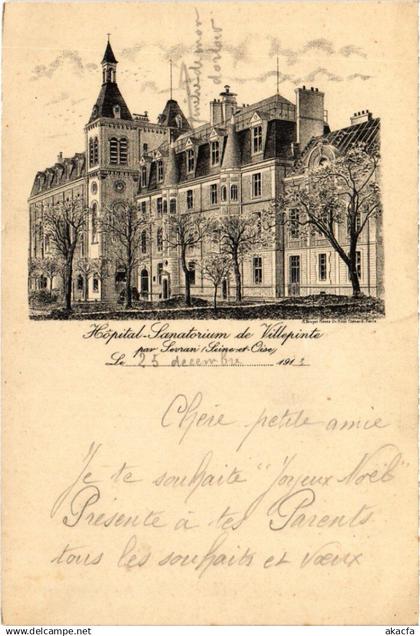 Hôpital-Sanatorium de Villepinte
par Sevran (Seine-et-Oise)
Le 25 decembre 1913
Chère petite amie
Je te souhaite "Joyeux Noël"
Présente à tes Parents
tous les souhaits et vœux
www.delcampe.net
akacfa